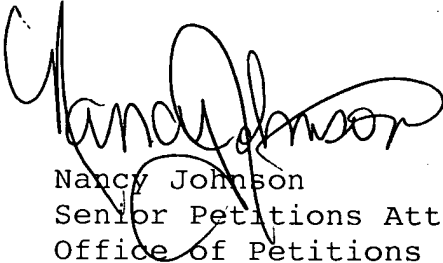 Nancy Johnson
Nancy Johnson
Senior Petitions Att
Office of Petitions